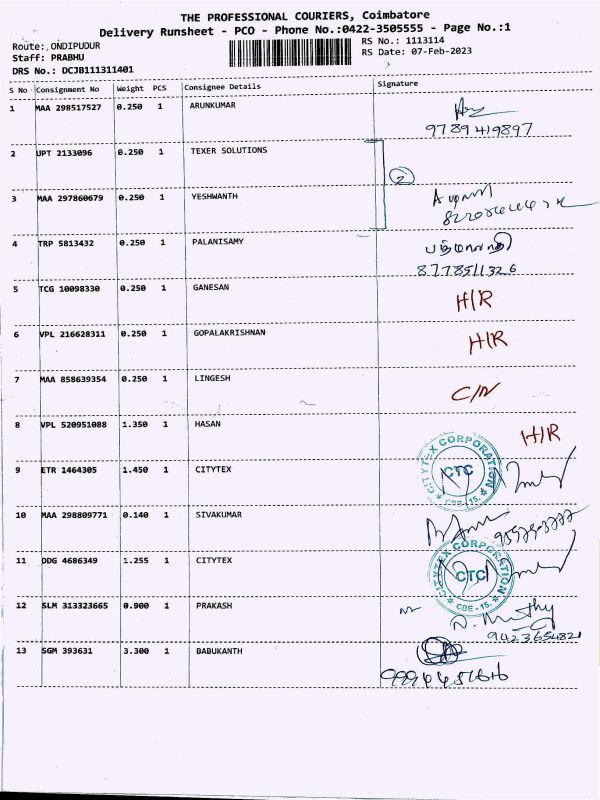 THE PROFESSIONAL COURIERS, Coimbatore
Delivery Runsheet - PCO - Phone No.:0422-3505555 - Page No.:1
Route: ONDIPUDUR RS No.: 1113114
Staff: PRABHU RS Date: 07-Feb-2023
DRS No.: DCJB111311401
S No Consignment No Weight PCS Consignee Details Signature
1 MAA 298517527 0.250 1 ARUNKUMAR
9789419897
2 UPT 2133096 0.250 1 TEXER SOLUTIONS
2
3 MAA 297860679 0.250 1 YESHWANTH
4 TRP 5813432 0.250 1 PALANISAMY
8778511326
5 TCG 10098330 0.250 1 GANESAN H/R
6 VPL 216628311 0.250 1 GOPALAKRISHNAN H/R
7 MAA 858639354 0.250 1 LINGESH C/N
8 VPL 520951088 1.350 1 HASAN H/R
9 ETR 1464305 1.450 1 CITYTEX
CITYTEX CORPORATION CTC CBE-15.
10 MAA 298809771 0.140 1 SIVAKUMAR
11 DDG 4686349 1.255 1 CITYTEX
CITYTEX CORPORATION CTC CBE-15.
12 SLM 313323665 0.900 1 PRAKASH
9423654821
13 SGM 393631 3.300 1 BABUKANTH